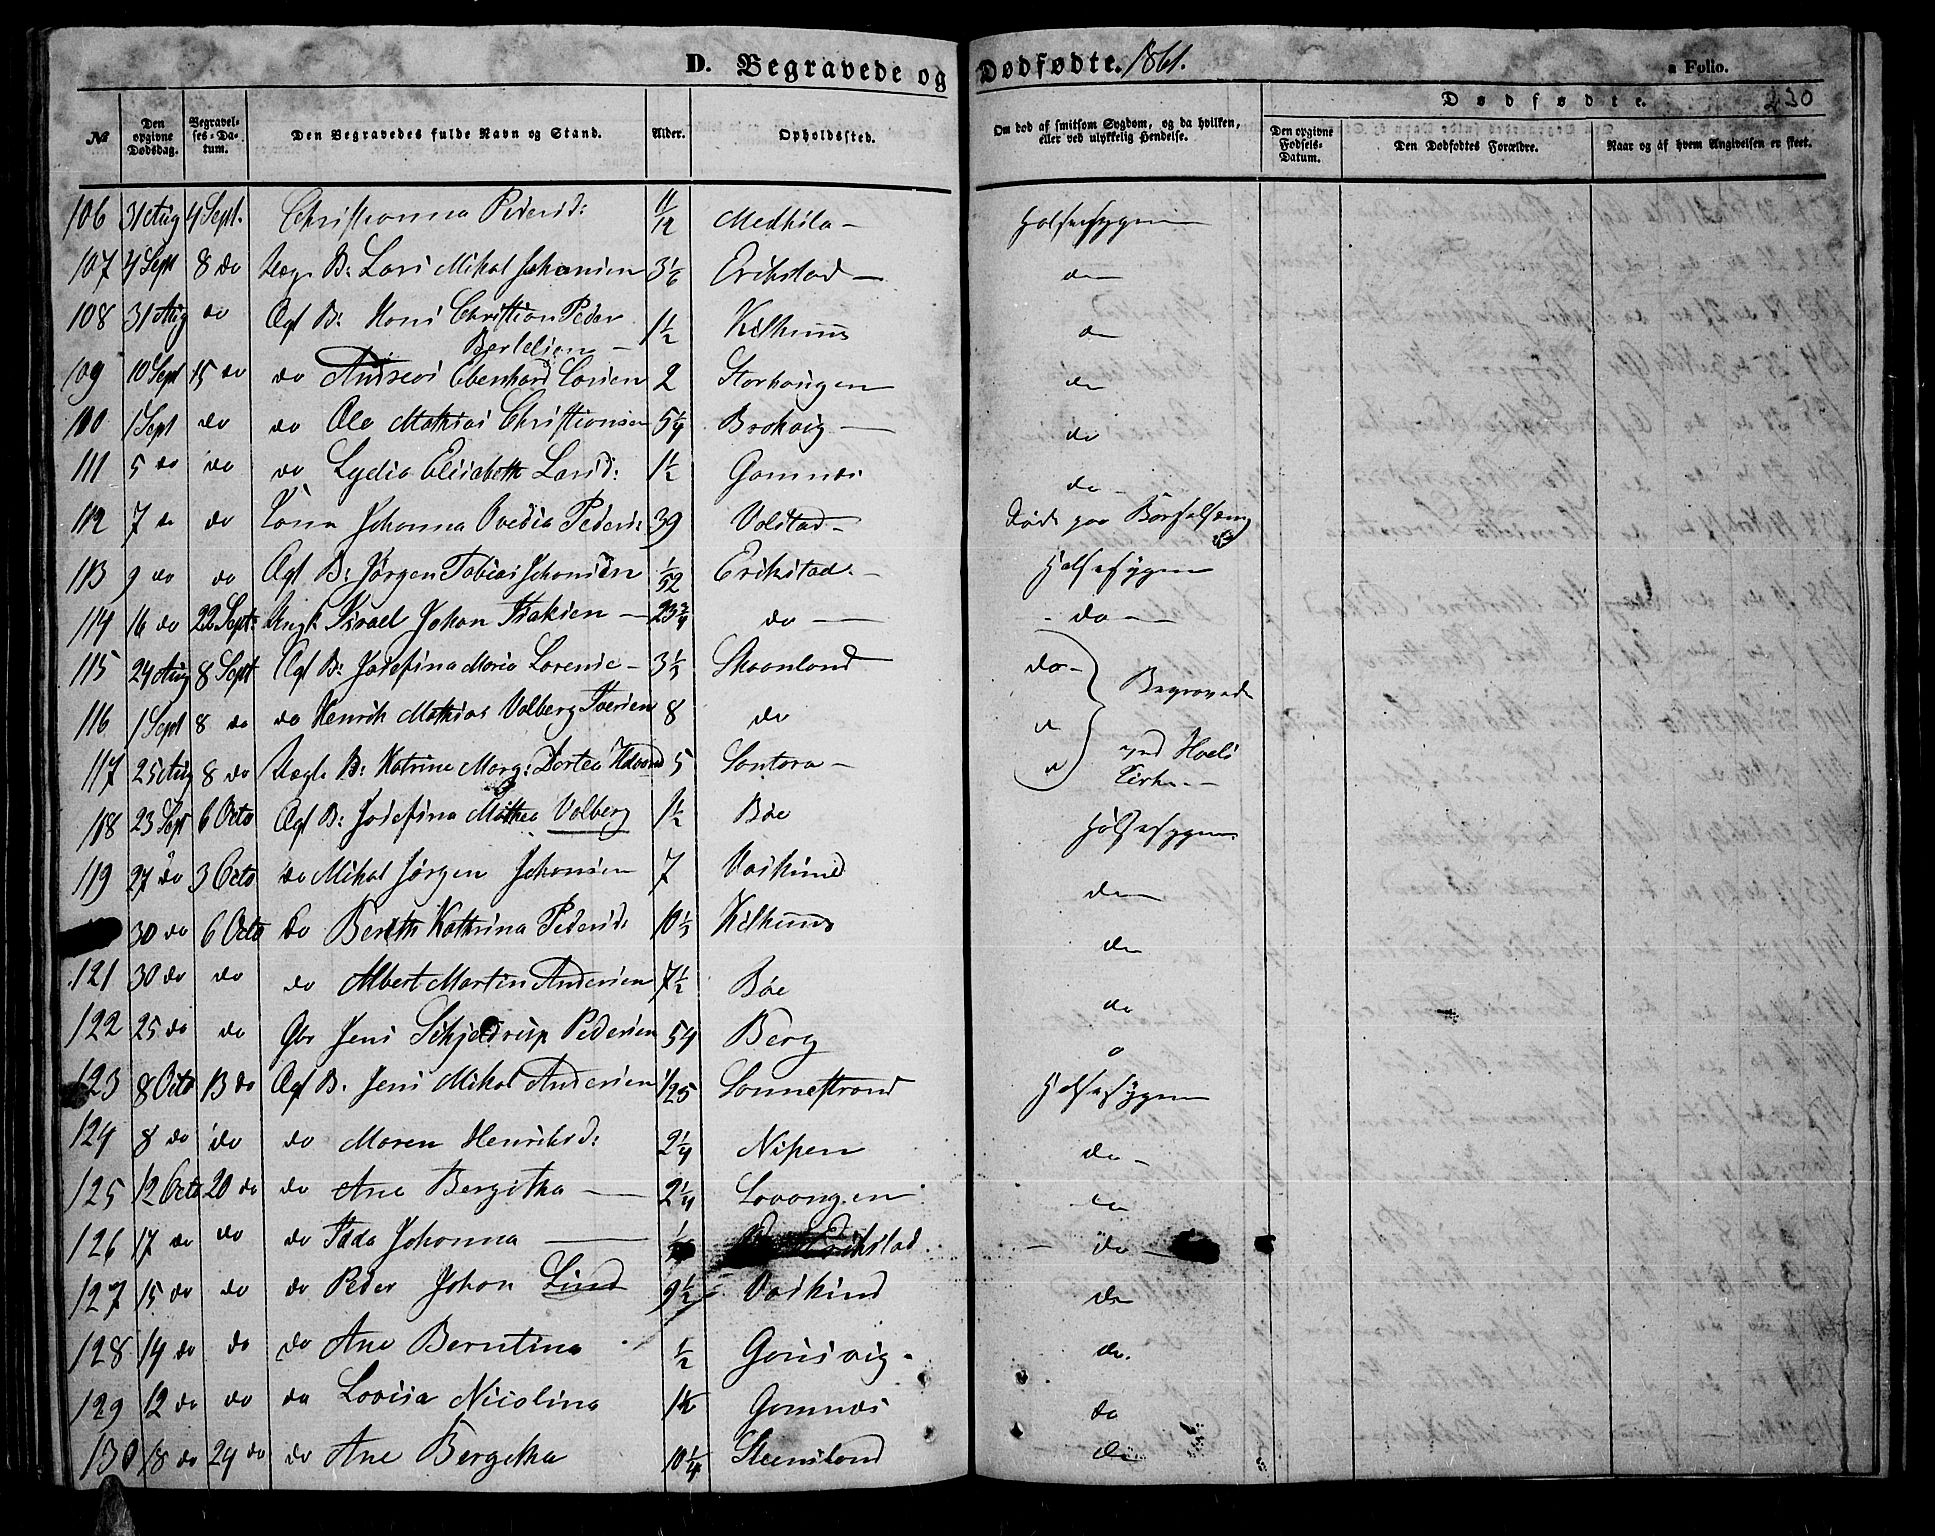 D. Begravede og Dødfødte. 1861.
a Folio.
230
Dødfødte.
№ Den opgivne Dødsdag. Begravelses-Datum. Den Begravedes fulde Navn og Stand. Alder. Opholdssted. Om død af smitsom Sygdom, og da hvilken, eller ved ulykkelig Hendelse. Den opgivne Fødsels-Datum. Den Dødfødtes Forældre. Naar og af hvem Angivelsen er skeet.
106 31 Aug 4 Sept. Christianna Pedersd: 11/12 Medkila - Halsesygen
107 4 Sept 8 do B: Lars Mikal Johansen 3 1/6 Erikstad - do
108 31 Aug do Ægt B: Hans Christian Peder Bertelsen - 1 1/2 Kilhuus do
109 10 Sept 15 do do Andreas Ebenhard Larsen 2 Storhaugen do
110 1 Sept do do Ole Mathias Christiansen 5 1/4 Brokvig - do
111 5 do do do Lydia Elisabeth Larsd: 1 1/2 Gamnæs do -
112 7 do do Johanna Ovedia Pedersd: 39 Volstad - Død paa Barselseng
113 9 do do Ægt B: Jørgen Tobias Johansen 1/52 Erikstad - Halsesygen
114 16 do 22 Sept: Ungk Israel Johan Isaksen - 23 3/4 do - do -
115 24 Aug 8 Sept Ægt B: Josefina Maria Lorense - 3 1/2 Skaanland do - Begravede
116 1 Sept 8 do do Henrik Mathias Volberg Iversen 8 do do
117 25 Aug 8 do Uægte B: Katrine Marg: Dortea 5 Santora - do ved Hvals Kirke -
118 23 Sept 6 Octo Ægt B: Josefina Mathea Volberg 1 1/2 Bøe Halsesygen
119 27 do 3 Octo do Mikal Jørgen Johansen 7 Vaskind do
30 do 6 Octo do Bereth Kathrina Pedersd: 10 1/2 Kilhuus do
121 30 do do do Albert Martin Andersen 7 1/2 Bøe do
122 25 do do Gbr Jens Schjeldrup Pedersen 54 Berg
123 8 Octo 13 do Ægt B: Jens Mikal Andersen 1/25 Sannestrand Halsesygen
124 8 do do do Maren Henriksd: 2 1/4 Nipen do -
125 12 Octo 20 do do Ane Bergitha - 2 1/4 Lavangen do
126 17 do do do Ida Johanna - Erikstad. - do -
127 15 do do do Peder Johan Lind 9 1/2 Vaskind do
128 14 do do do Ane Berntina 1/2 Gausvig - do.
129 12 do do do Lovisa Nicolina Gamnæs do
130 18 do 24 do do Ane Bergitha 10 1/4 Steensland do